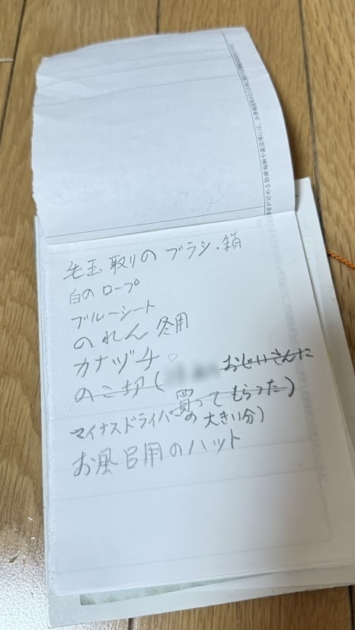 毛玉取りのブラシ・箱
白のロープ
ブルーシート
のれん 冬用
カナヅチ
のこ切(
おじいさんに
買ってもらった)
マイナスドライバーの大きい分)
お風呂用のハット